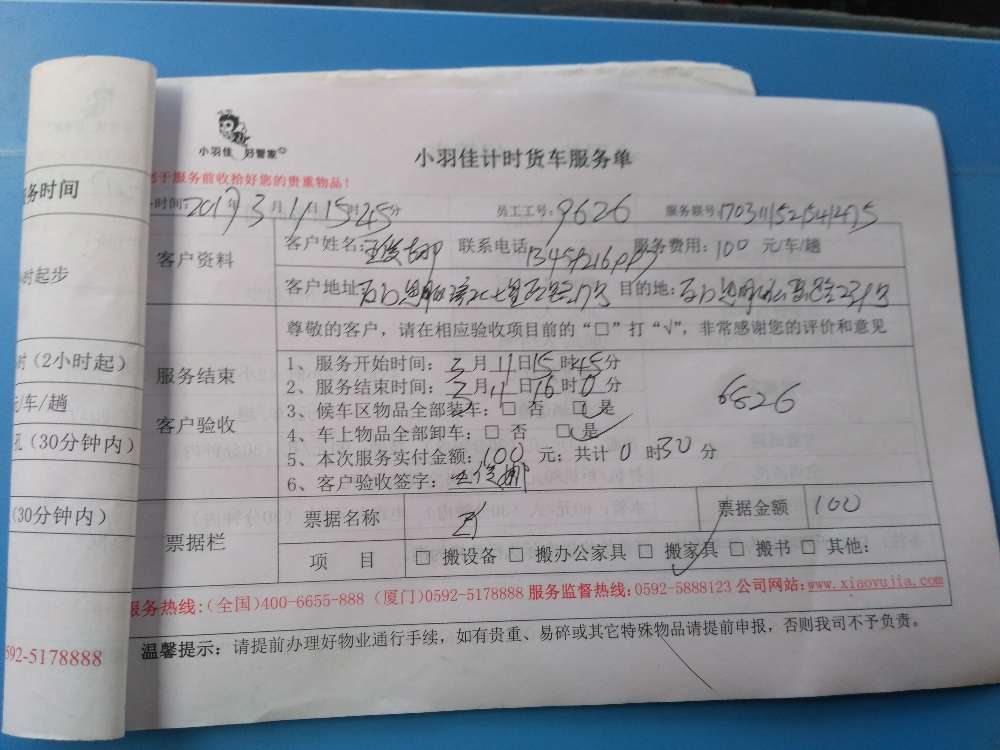 小羽佳 好管家
小羽佳计时货车服务单
于服务前收拾好您的贵重物品！
时间：2017年3月11日15时45分 员工工号：9626 服务账号
客户资料
客户姓名：王俊娜 联系电话： 服务费用：100 元/车/趟
客户地址： 目的地：
尊敬的客户，请在相应验收项目前的“□”打“√”，非常感谢您的评价和意见
服务结束
客户验收
1、服务开始时间：3月11日15时45分
2、服务结束时间：3月11日16时0分
3、候车区物品全部装车：□ 否 □ 是
4、车上物品全部卸车：□ 否 □ 是
5、本次服务实付金额：100 元；共计 0 时30 分
6、客户验收签字：王俊娜
6826
票据栏
票据名称 票据金额 100
项 目 □ 搬设备 □ 搬办公家具 □ 搬家具 □ 搬书 □ 其他：
服务热线：（全国）400-6655-888（厦门）0592-5178888 服务监督热线：0592-5888123 公司网站：www.xiaoyujia.com
温馨提示：请提前办理好物业通行手续，如有贵重、易碎或其它特殊物品请提前申报，否则我司不予负责。
务时间
时起步
时（2小时起）
/车/趟
（30分钟内）
（30分钟内）
592-5178888